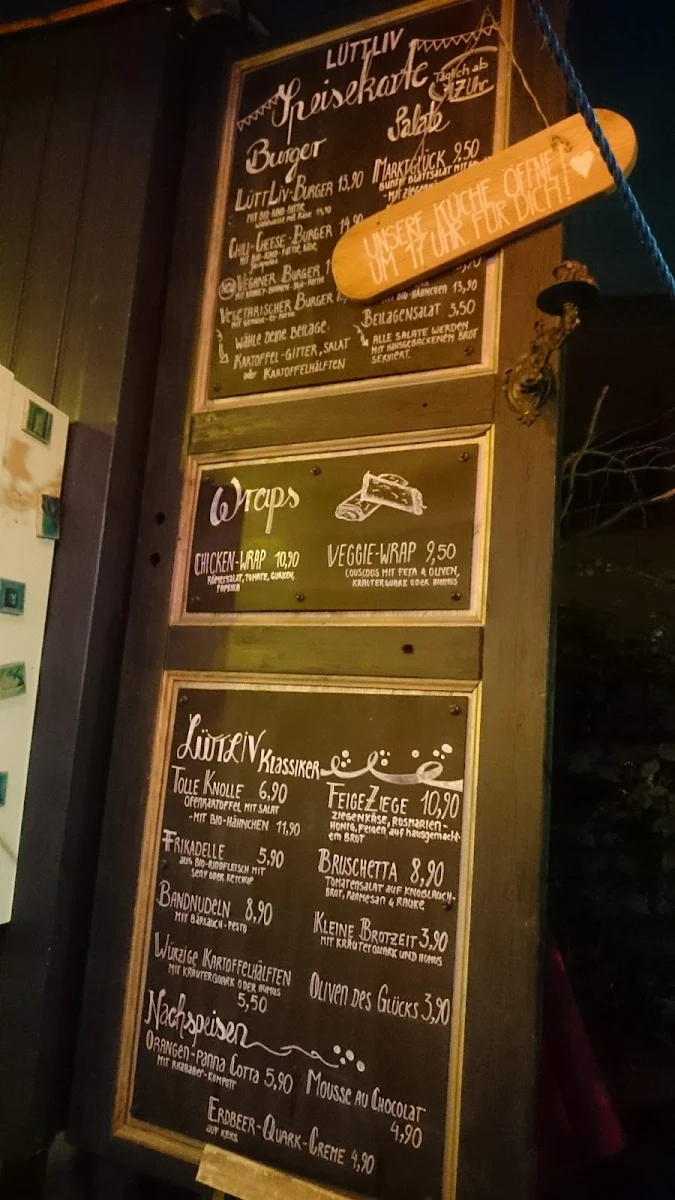 LÜTTLIV
Speisekarte
Täglich ab
17 Uhr
Burger
LüttLiv-Burger 13,90
mit Bio-Rind-Pattie
wahlweise mit Käse 14,90
Chili-Cheese-Burger 14,90
mit Bio-Rind-Pattie, Käse,
Jalapeños
Veganer Burger
Vegetarischer Burger
mit Gemüse-
Wähle deine Beilage:
Kartoffel-Gitter, Salat
oder Kartoffelhälften
Salate
Marktglück 9,50
Bunte Blattsalat mit
-mit Ziegen
UNSERE KÜCHE ÖFFNET
UM 17 UHR FÜR DICH!
-mit Bio-Hähnchen 13,90
Beilagensalat 3,50
Alle Salate werden
mit hausgebackenen Brot
serviert.
Wraps
Chicken-Wrap 10,90
Römersalat, Tomate, Gurken,
Paprika
Veggie-Wrap 9,50
Couscous mit Feta & Oliven,
Kräuterquark oder Humus
LüttLiv Klassiker
Tolle Knolle 6,90
Ofenkartoffel mit Salat
-mit Bio-Hähnchen 11,90
Frikadelle 5,90
aus Bio-Rindfleisch mit
Senf oder Ketchup
Bandnudeln 8,90
mit Bärlauch-Pesto
Würzige Kartoffelhälften
mit Kräuterquark oder Humus
5,50
FeigeZiege 10,90
Ziegenkäse, Rosmarien-
Honig, Feigen auf hausgemacht-
em Brot
Bruschetta 8,90
Tomatensalat auf Knoblauch-
Brot, Parmesan & Rauke
Kleine Brotzeit 3,90
mit Kräuterquark und Humus
Oliven des Glücks 3,90
Nachspeisen
Orangen-Panna Cotta 5,90
mit Rhababer-Kompott
Mousse au Chocolat
4,90
Erdbeer-Quark-Creme 4,90
auf Keks